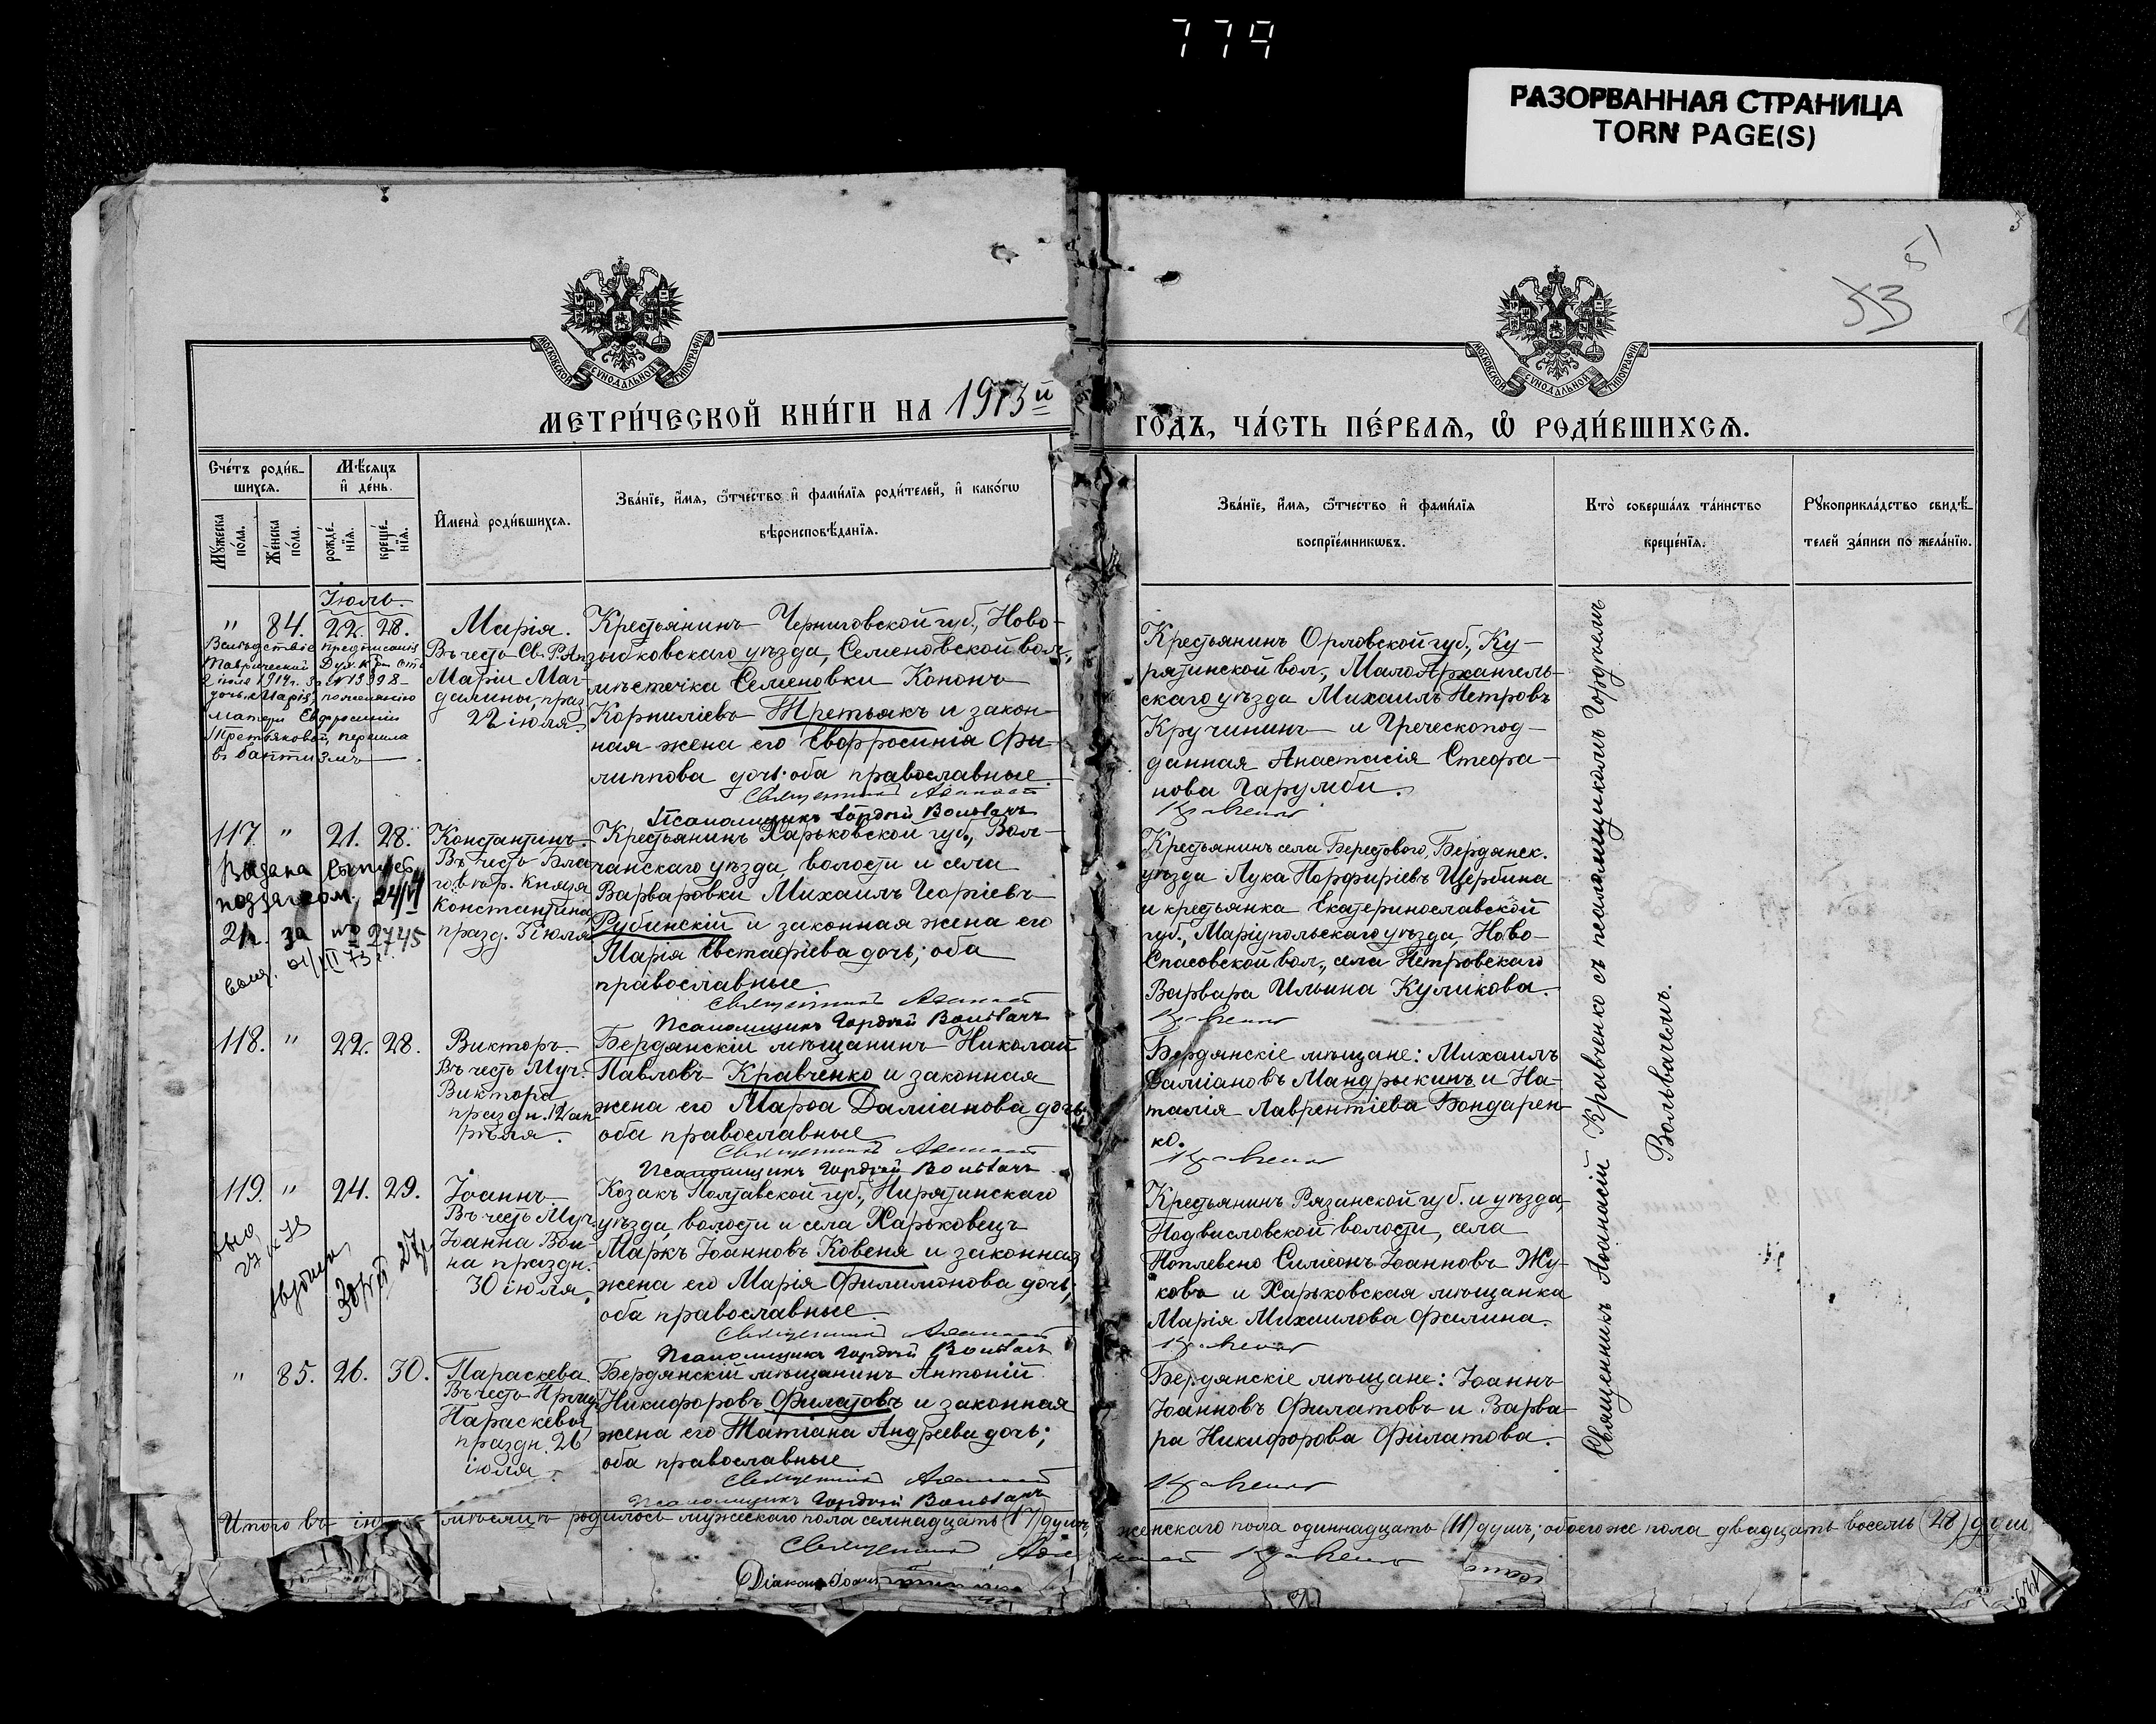 779
РАЗОРВАННАЯ СТРАНИЦА
TORN PAGE(S)
51
53
МОСКОВСКОЙ СѴНОДАЛЬНОЙ ТИПОГРАФІИ
МОСКОВСКОЙ СѴНОДАЛЬНОЙ ТИПОГРАФІИ
МЕТРИ́ЧЕСКОЙ КНИ́ГИ НА 1913й
ГОДЪ, ЧА́СТЬ ПЕ́РВАѦ, Ѡ҆ РОДИ́ВШИХСѦ.
Сче́тъ роди́в-
шихсѧ.
Мѣ́сяцъ
и҆ де́нь.
Мꙋ́жеска
по́ла.
Же́нска
по́ла.
рожде́-
нїѧ.
креще́-
нїѧ.
И҆мена̀ роди́вшихсѧ.
Зва́нїе, и҆́мѧ, ѻ҆́тчество и҆ фамѝлїѧ роди́телей, и҆ како́гѡ
вѣроисповѣ́данїѧ.
Зва́нїе, и҆́мѧ, ѻ҆́тчество и҆ фами́лїѧ
воспрїе́мникѡвъ.
Кто̀ соверша́лъ та́инство
креще́нїѧ.
Рꙋкоприкла́дство свидѣ́-
телей за́писи по жела́нїю.
Іюль.
" 84. 22. 28.
Вслѣдствіе предписанія
Таврической Дух. К-ріи отъ
2 іюля 1914г. за №13398-
дочь Марія, по желанію
матери Евфросиніи
Третьяковой, перешла
въ баптизмъ
Марія.
Въ честь Св. Р. Ап.
Маріи Маг-
далины, праз.
22 іюля.
Крестьянинъ Черниговской губ., Ново-
зыбковскаго уѣзда, Семеновской вол.,
мѣстечка Семеновки Кононъ
Корниліевъ Третьякъ и закон-
ная жена его Евфросинія Фи-
липпова дочь; оба православные.
Священникъ Аѳанасій
Псаломщикъ Гордѣй Вольвачъ
Крестьянинъ Орловской губ., Ку-
рятинской вол., МалоАрхангель-
скаго уѣзда Михаилъ Петровъ
Кручининъ и Греческопод-
данная Анастасія Стефа-
нова Гарумби.
Кравченко
117. " 21. 28.
Выдана
24/VI
за № 2745
Константинъ.
Въ честь Бла-
говѣр. Князя
Константина
празд. 3 іюля
Крестьянинъ Харьковской губ., Вол-
чанскаго уѣзда, волости и села
Варваровки Михаилъ Георгіевъ
Рубинскій и законная жена его
Марія Евстафіева дочь; оба
православные.
Священникъ Аѳанасій
Псаломщикъ Гордѣй Вольвачъ
Крестьянинъ села Берестового, Бердянск.
уѣзда Лука Порфиріевъ Щербина
и крестьянка Екатеринославской
губ., Маріупольскаго уѣзда, Ново-
Спасовской вол., села Петровскаго
Варвара Ильина Куликова.
Кравченко
118. " 22. 28.
Викторъ.
Въ честь Муч.
Виктора
праздн. 12 ап-
рѣля.
Бердянскій мѣщанинъ Николай
Павловъ Кравченко и законная
жена его Марѳа Даміанова дочь;
оба православные.
Священникъ Аѳанасій
Псаломщикъ Гордѣй Вольвачъ
Бердянскіе мѣщане: Михаилъ
Даміановъ Мандрыкинъ и На-
талія Лаврентіева Бондарен-
ко.
Кравченко
119. " 24. 29.
Іоаннъ
Въ честь Муч.
Іоанна Вои-
на праздн.
30 іюля.
Козакъ Полтавской губ., Пирятинскаго
уѣзда, волости и села Харьковецъ
Маркъ Іоанновъ Ковеня и законная
жена его Марія Филимонова дочь;
оба православные.
Священникъ Аѳанасій
Псаломщикъ Гордѣй Вольвачъ
Крестьянинъ Рязанской губ. и уѣзда,
Подвисловской волости, села
Поплевено Симеонъ Іоанновъ Жу-
ковъ и Харьковская мѣщанка
Марія Михаилова Филина.
Кравченко
" 85. 26. 30.
Параскева
Въ честь Прмц.
Параскевы
праздн. 26
іюля.
Бердянскій мѣщанинъ Антоній
Никифоровъ Филатовъ и законная
жена его Татіана Андреева дочь;
оба православные.
Священникъ Аѳанасій
Псаломщикъ Гордѣй Вольвачъ
Бердянскіе мѣщане: Іоаннъ
Іоанновъ Филатовъ и Варва-
ра Никифорова Филатова.
Кравченко
Священникъ Аѳанасій Кравченко съ псаломщикомъ Гордѣемъ
Вольвачемъ.
Итого въ мѣсяцѣ родилось мужескаго пола семнадцать (17) душъ, женскаго пола одиннадцать (11) душъ; обоего же пола двадцать восемь (28) душ
Священникъ Аѳанасій Кравченко
Діаконъ Іоаннъ